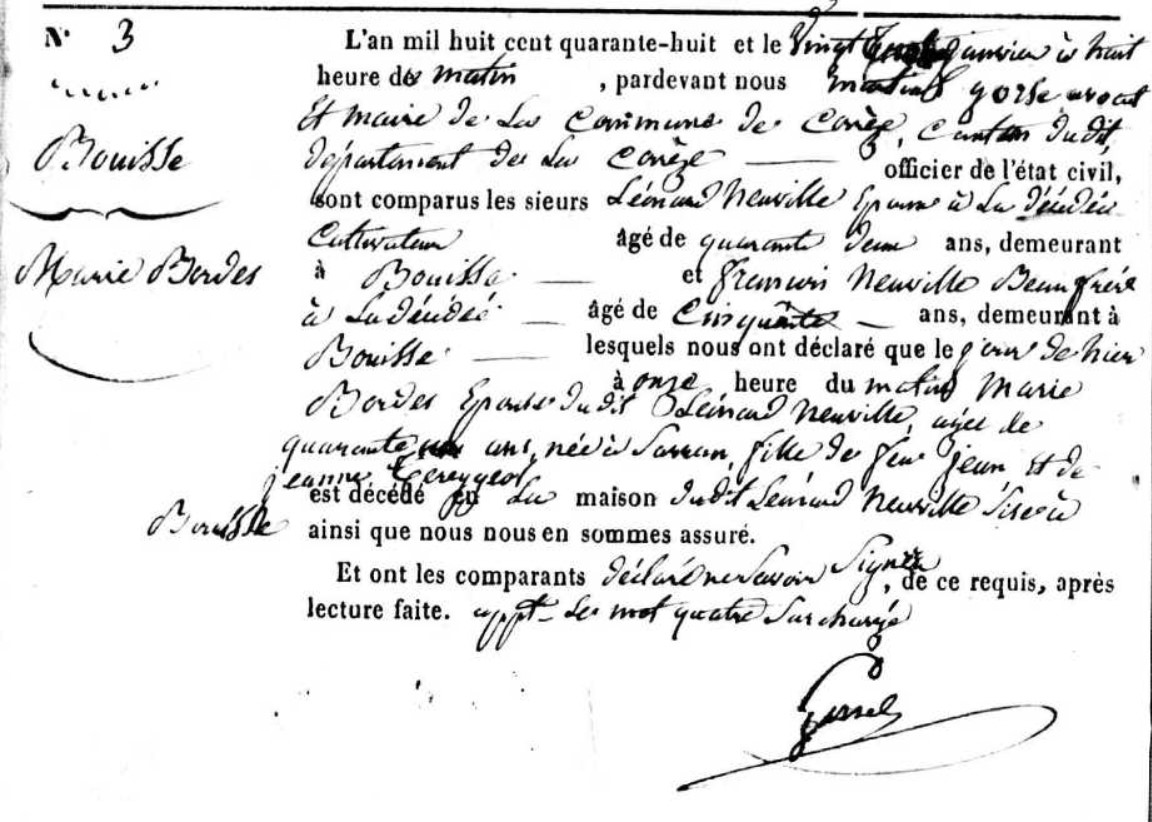 N° 3
Bouisse
Marie Bordes
L'an mil huit cent quarante-huit et le Vingt quatre janvier à huit
heure des matin , pardevant nous martial gorse avocat
Et maire de La Commune de Corrèze, Canton dudit,
département de La Corrèze officier de l'état civil,
sont comparus les sieurs Léonard Neuville Epoux à La décédée
Cultivateur âgé de quarante deux ans, demeurant
à Bouisse et françois Neuville Beaufrère
à La décédée âgé de Cinquante ans, demeurant à
Bouisse lesquels nous ont déclaré que le jour de hier
à onze heure du matin Marie
Bordes Epouse dudit Léonard Neuville, agée de
quarante ans, née à Sarran, fille de feu jean et de
jeanne
est décédé en La maison dudit Léonard Neuville Sise à
Bouisse ainsi que nous nous en sommes assuré.
Et ont les comparants déclaré ne Savoir Signer, de ce requis, après
lecture faite. appt. Le mot quatre Surchargé